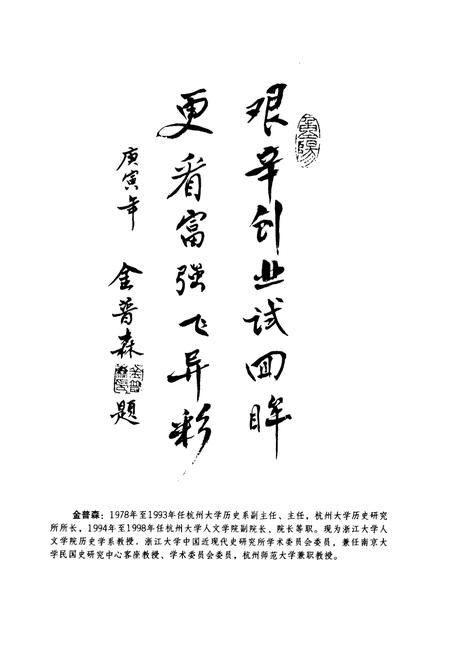 艰辛创业试回眸
更看富强飞异彩
庚寅年
金普森题
金普森：1978年至1993年任杭州大学历史系副主任、主任，杭州大学历史研究
所所长，1994年至1998年任杭州大学人文学院副院长、院长等职。现为浙江大学人
文学院历史学系教授，浙江大学中国近现代史研究所学术委员会委员，兼任南京大
学民国史研究中心客座教授、学术委员会委员，杭州师范大学兼职教授。